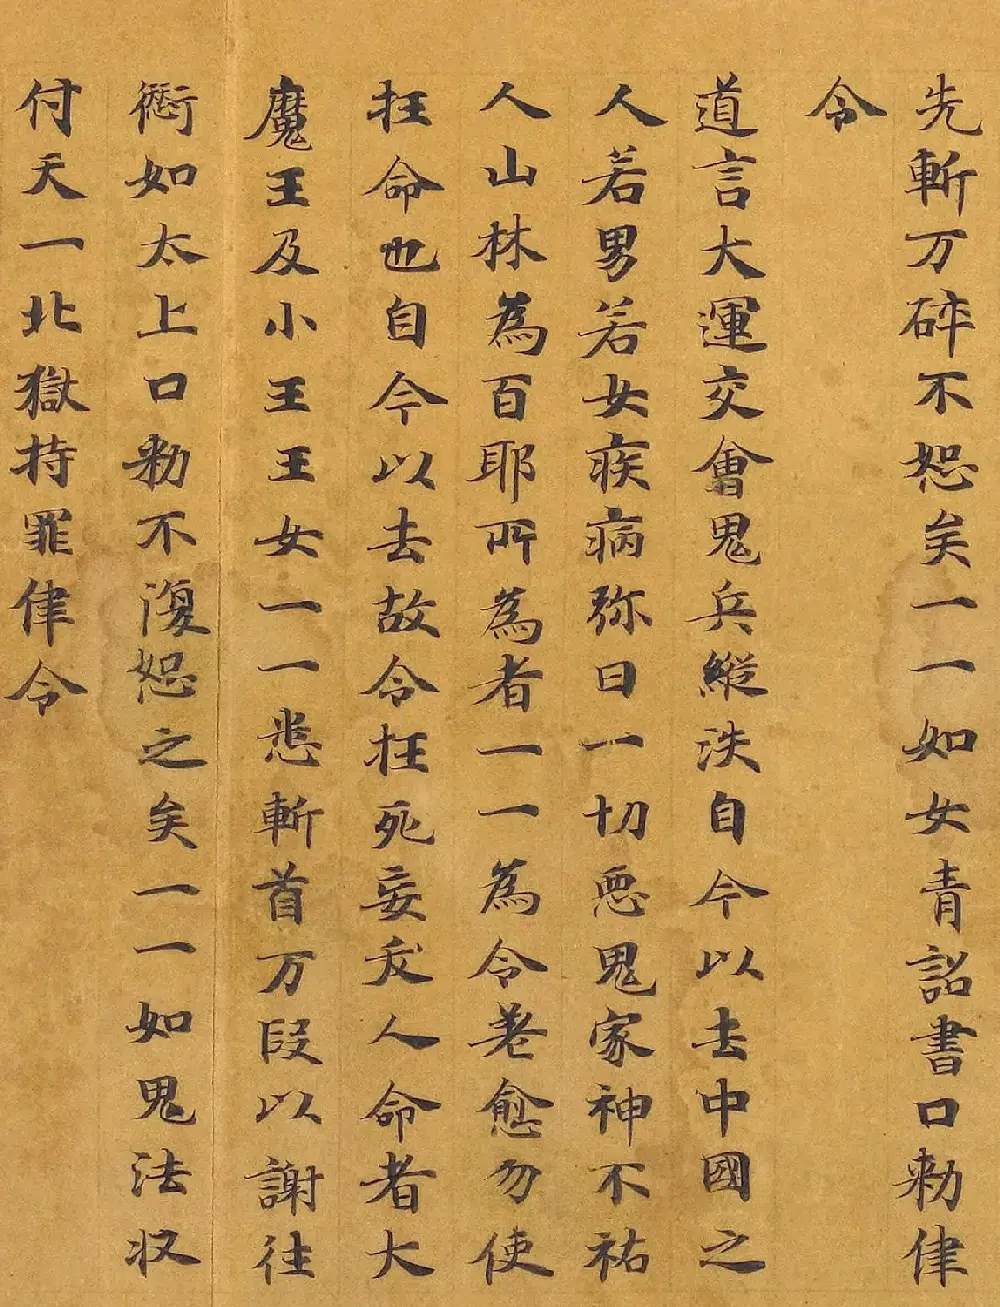 先斬万碎不恕矣一一如女青詔書口勅律
令
道言大運交會鬼兵縱泆自今以去中國之
人若男若女疾病弥日一切惡鬼家神不祐
人山林為百耶所為者一一為令差愈勿使
枉命也自今以去故令枉死妄煞人命者大
魔王及小王王女一一悉斬首万段以謝往
衍如太上口勅不復恕之矣一一如鬼法収
付天一北獄持罪律令